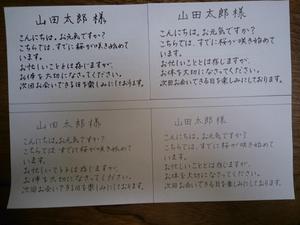 山田太郎様
こんにちは。お元気ですか?
こちらでは、すでに桜が咲き始めて
います。
お忙しいこととは存じますが、
お体を大切になさってください。
次回お会いできる日を楽しみにしております。
山田太郎様
こんにちは。お元気ですか?
こちらでは、すでに桜が咲き始めて
います。
お忙しいこととは存じますが、
お体を大切になさってください。
次回お会いできる日を楽しみにしております。
山田太郎様
こんにちは。お元気ですか?
こちらでは、すでに桜が咲き始めて
います。
お忙しいこととは存じますが、
お体を大切になさってください。
次回お会いできる日を楽しみにしております。
山田太郎様
こんにちは。お元気ですか?
こちらでは、すでに桜が咲き始めて
います。
お忙しいこととは存じますが、
お体を大切になさってください。
次回お会いできる日を楽しみにしております。